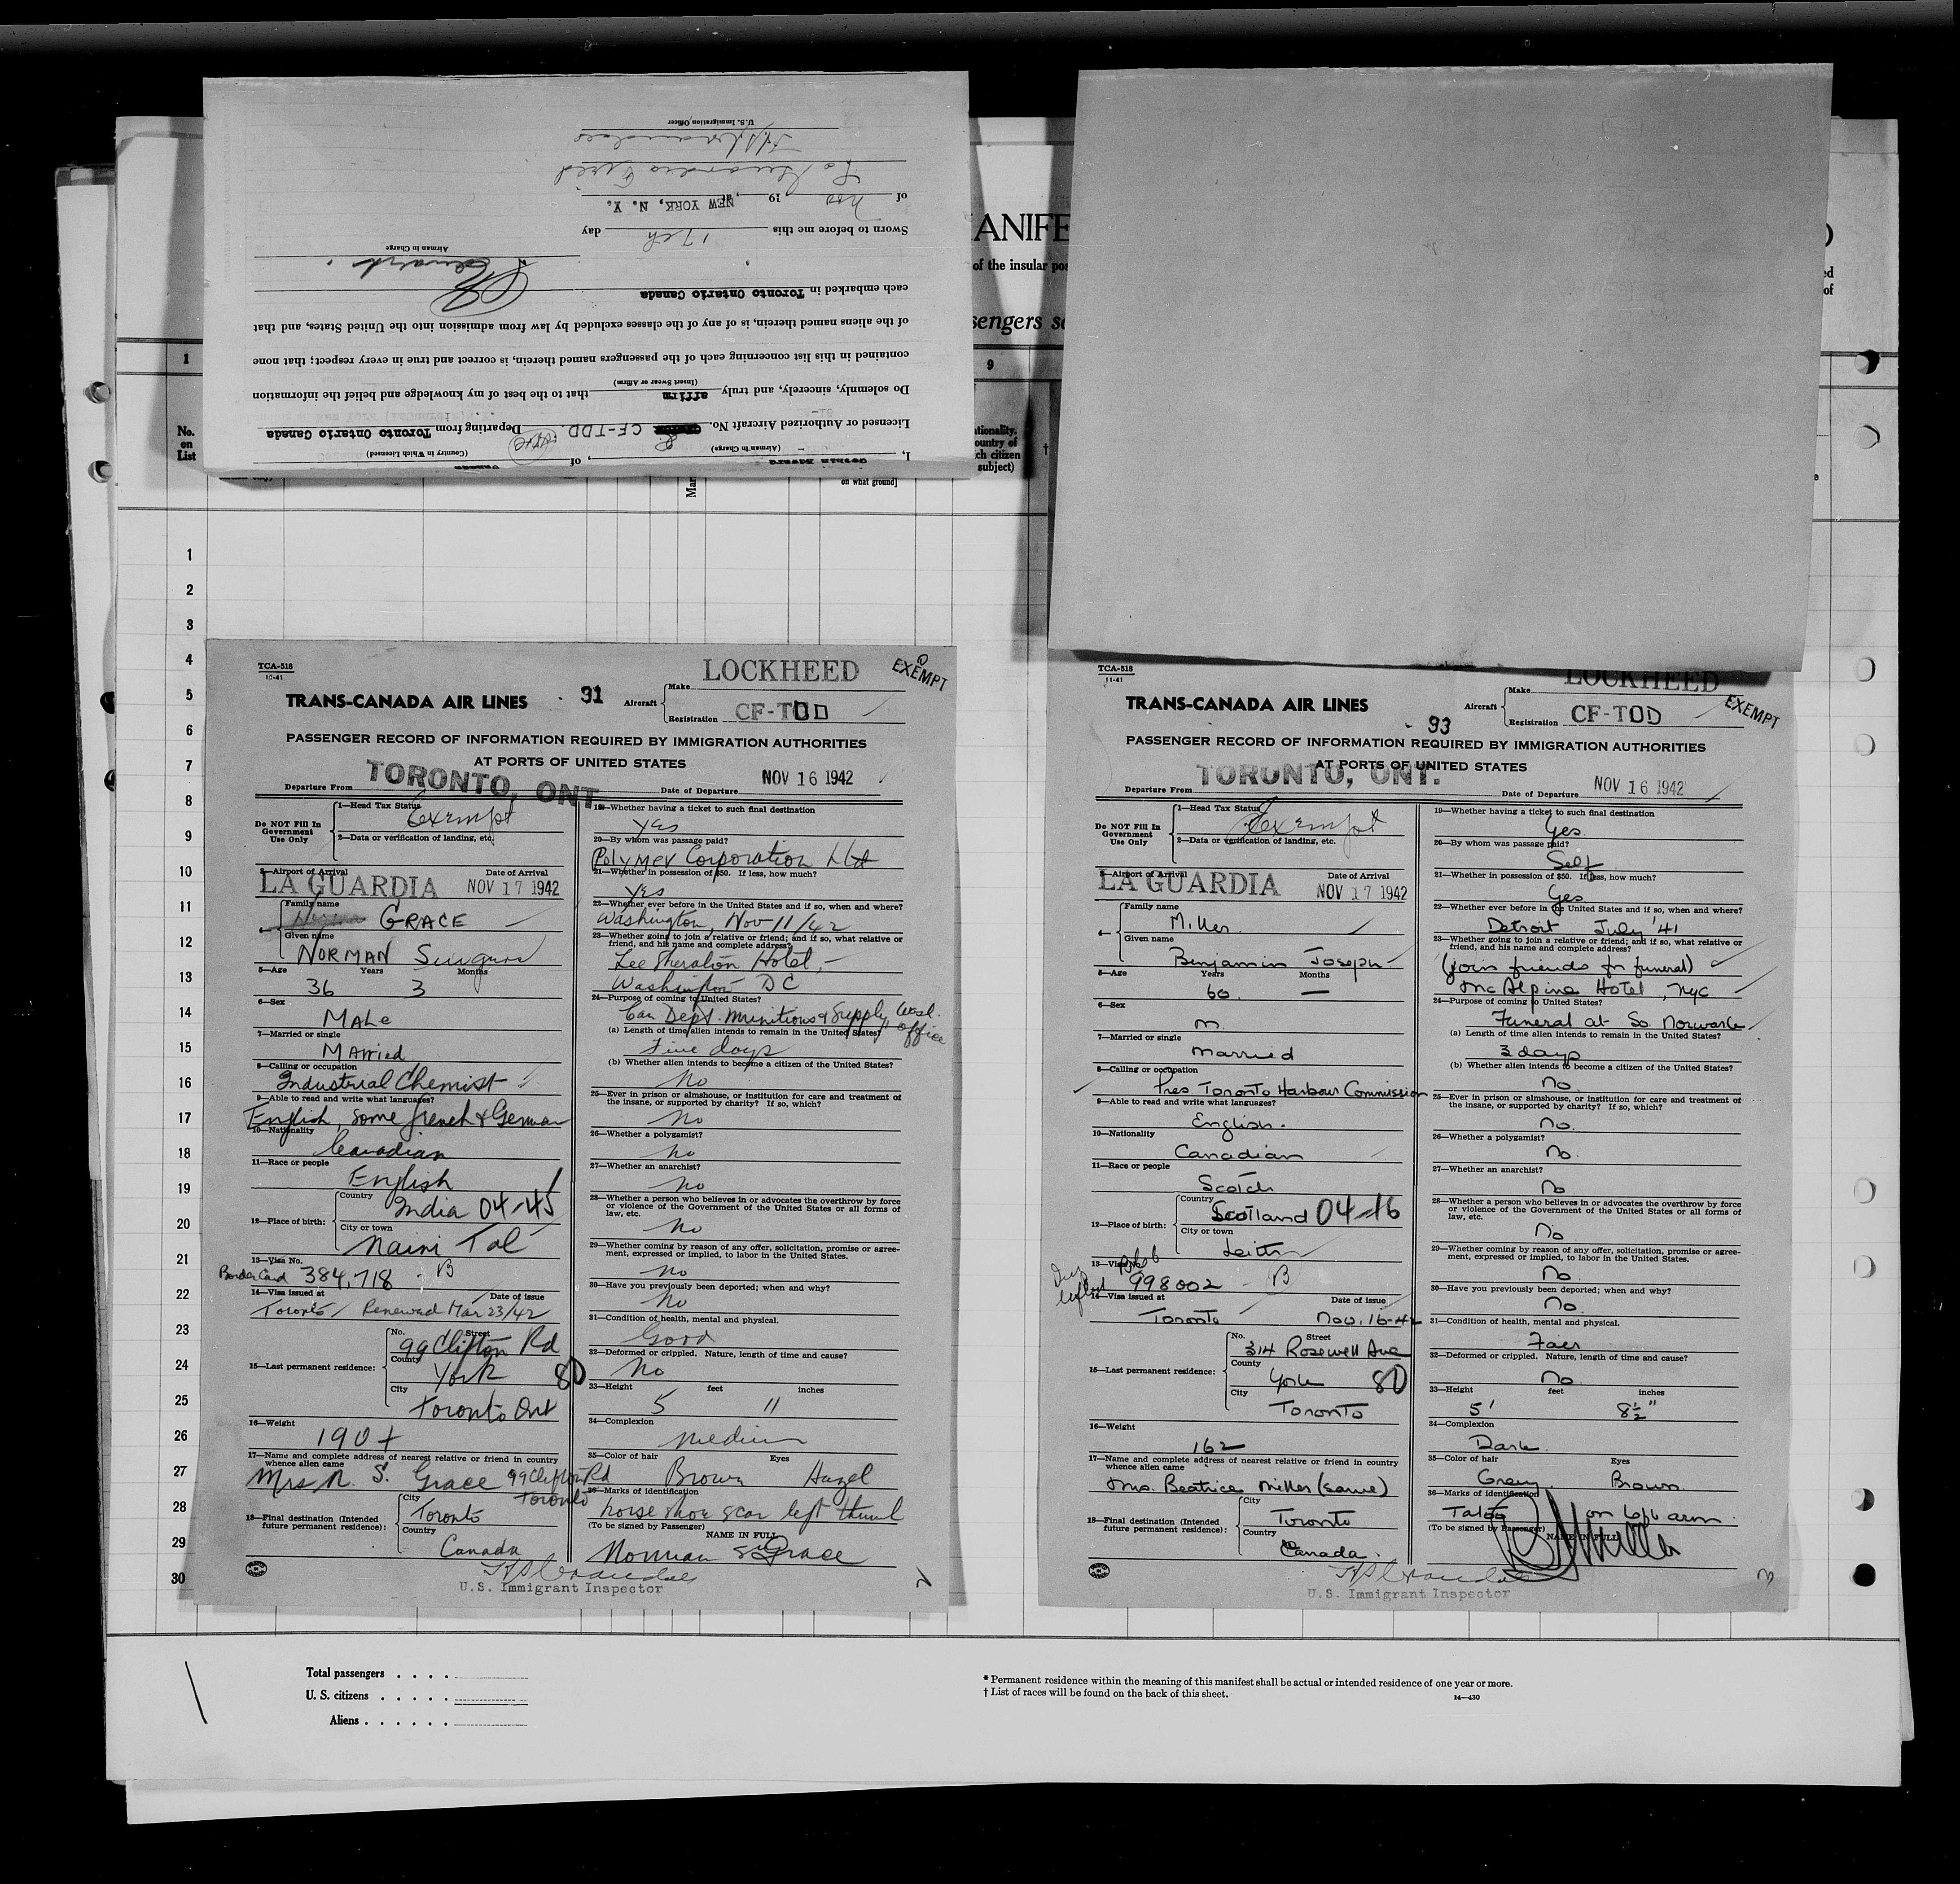 U.S. Immigration Officer
of Nov 19 , at NEW YORK, N. Y.
Sworn to before me this 17th day
Airman in Charge
each embarked in Toronto Ontario Canada
of the aliens named therein, is of any of the classes excluded by law from admission into the United States, and that
contained in this list concerning each of the passengers named therein, is correct and true in every respect; that none
(Insert Swear or Affirm)
Do solemnly, sincerely, and truly affirm that to the best of my knowledge and belief the information
Licensed or Authorized Aircraft No. CF-TDD Departing from Toronto Ontario Canada
(Airman in Charge) (Country in Which Licensed)
I, , of Canada
ANIFE
of the insular pos
sengers s
ed
of
1
9
No.
on
List
ationality.
ountry of
ch citizen
subject)
†
Mar
on what ground]
1
2
3
4
5
6
7
8
9
10
11
12
13
14
15
16
17
18
19
20
21
22
23
24
25
26
27
28
29
30
TCA-518
10-41
LOCKHEED
EXEMPT
TRANS-CANADA AIR LINES
31
Aircraft
Make
Registration CF-TDD
PASSENGER RECORD OF INFORMATION REQUIRED BY IMMIGRATION AUTHORITIES
AT PORTS OF UNITED STATES
Departure From TORONTO, ONT
Date of Departure NOV 16 1942
Do NOT Fill In
Government
Use Only
1—Head Tax Status Exempt
2—Data or verification of landing, etc.
3—Airport of Arrival Date of Arrival
LA GUARDIA NOV 17 1942
4—
Family name
GRACE
Given name
NORMAN
5—Age Years Months
36 3
6—Sex
MALe
7—Married or single
MArried
8—Calling or occupation
Industrial Chemist
9—Able to read and write what languages?
English, some french & German
10—Nationality
Canadian
11—Race or people
English
12—Place of birth:
Country
India 04-45
City or town
Naini Tal
13—Visa No.
Border Card 384,718 - B
14—Visa issued at Date of issue
Toronto / Renewed Mar 23/42
15—Last permanent residence:
No. Street
99 Clifton Rd
County
York 80
City
Toronto Ont
16—Weight
190 +
17—Name and complete address of nearest relative or friend in country
whence alien came
Mrs N. S. Grace 99 Clifton Rd
Toronto
18—Final destination (Intended
future permanent residence):
City
Toronto
Country
Canada
19—Whether having a ticket to such final destination
yes
20—By whom was passage paid?
Polymer Corporation Ltd
21—Whether in possession of $50. If less, how much?
Yes
22—Whether ever before in the United States and if so, when and where?
Washington, Nov 11/42
23—Whether going to join a relative or friend; and if so, what relative or
friend, and his name and complete address?
Lee Sheraton Hotel,
Washington DC
24—Purpose of coming to United States?
Can Dept. Munitions & Supply Wash.
office
(a) Length of time alien intends to remain in the United States?
Five days
(b) Whether alien intends to become a citizen of the United States?
No
25—Ever in prison or almshouse, or institution for care and treatment of
the insane, or supported by charity? If so, which?
No
26—Whether a polygamist?
No
27—Whether an anarchist?
No
28—Whether a person who believes in or advocates the overthrow by force
or violence of the Government of the United States or all forms of
law, etc.
No
29—Whether coming by reason of any offer, solicitation, promise or agree-
ment, expressed or implied, to labor in the United States.
No
30—Have you previously been deported; when and why?
No
31—Condition of health, mental and physical.
Good
32—Deformed or crippled. Nature, length of time and cause?
No
33—Height feet inches
5 11
34—Complexion
Medium
35—Color of hair Eyes
Brown Hazel
36—Marks of identification
horse shoe scar left thumb
(To be signed by Passenger)
NAME IN FULL
Norman S Grace
U.S. Immigrant Inspector
2
TCA-518
11-41
LOCKHEED
EXEMPT
TRANS-CANADA AIR LINES
93
Aircraft
Make
Registration CF-TDD
PASSENGER RECORD OF INFORMATION REQUIRED BY IMMIGRATION AUTHORITIES
AT PORTS OF UNITED STATES
Departure From TORONTO, ONT.
Date of Departure NOV 16 1942
Do NOT Fill In
Government
Use Only
1—Head Tax Status Exempt
2—Data or verification of landing, etc.
3—Airport of Arrival Date of Arrival
LA GUARDIA NOV 17 1942
4—
Family name
Miller
Given name
Benjamin Joseph
5—Age Years Months
60 —
6—Sex
m
7—Married or single
married
8—Calling or occupation
Pres Toronto Harbour Commission
9—Able to read and write what languages?
English.
10—Nationality
Canadian
11—Race or people
Scotch
12—Place of birth:
Country
Scotland 04-16
City or town
Leith
13—Visa No.
998002 - B
14—Visa issued at Date of issue
Toronto Nov. 16-42
15—Last permanent residence:
No. Street
314 Rosewell Ave
County
York 80
City
Toronto
16—Weight
162
17—Name and complete address of nearest relative or friend in country
whence alien came
Mrs. Beatrice Miller (same)
18—Final destination (Intended
future permanent residence):
City
Toronto
Country
Canada.
19—Whether having a ticket to such final destination
Yes
20—By whom was passage paid?
Self
21—Whether in possession of $50. If less, how much?
Yes
22—Whether ever before in the United States and if so, when and where?
Detroit July '41
23—Whether going to join a relative or friend; and if so, what relative or
friend, and his name and complete address?
(join friends for funeral)
McAlpine Hotel, NYC
24—Purpose of coming to United States?
Funeral at So Norwark
(a) Length of time alien intends to remain in the United States?
3 days
(b) Whether alien intends to become a citizen of the United States?
no
25—Ever in prison or almshouse, or institution for care and treatment of
the insane, or supported by charity? If so, which?
no.
26—Whether a polygamist?
No.
27—Whether an anarchist?
No
28—Whether a person who believes in or advocates the overthrow by force
or violence of the Government of the United States or all forms of
law, etc.
No
29—Whether coming by reason of any offer, solicitation, promise or agree-
ment, expressed or implied, to labor in the United States.
No.
30—Have you previously been deported; when and why?
No.
31—Condition of health, mental and physical.
Fair
32—Deformed or crippled. Nature, length of time and cause?
no
33—Height feet inches
5' 8½"
34—Complexion
Dark
35—Color of hair Eyes
Grey Brown
36—Marks of identification
Tatoo on left arm
(To be signed by Passenger)
NAME IN FULL
BJ Miller
U.S. Immigrant Inspector
Total passengers . . . .
U. S. citizens . . . . .
Aliens . . . . . .
* Permanent residence within the meaning of this manifest shall be actual or intended residence of one year or more.
† List of races will be found on the back of this sheet.
14—430